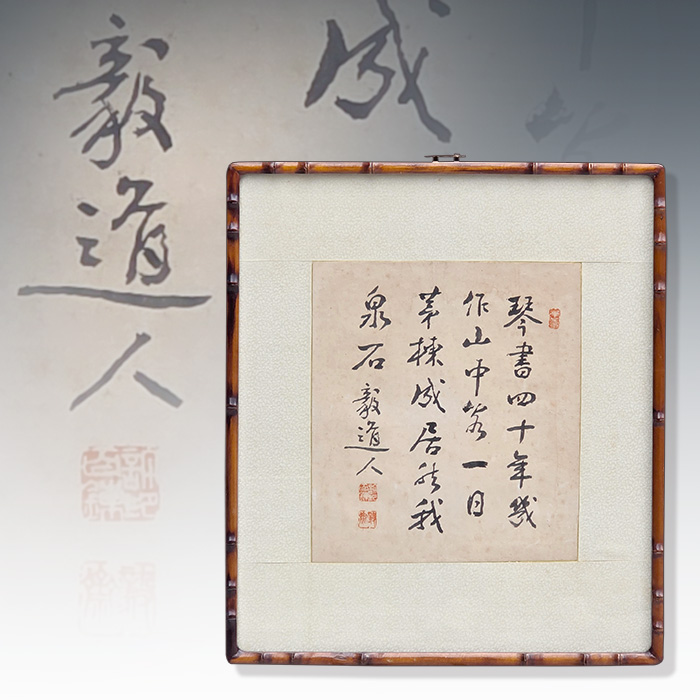 琴書四十年幾
作山中客一日
茅棟成居然我
泉石 毅道人
成
毅道人